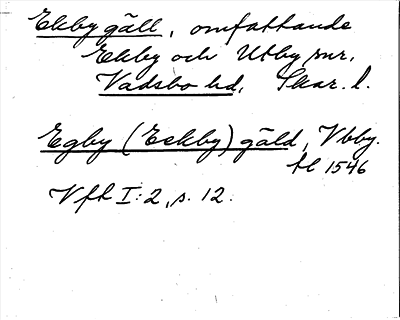 Ekby gäll, omfattande
Ekby och Utby snr,
Vadsbo hd, Skar. l.
Egby (Eekby) gäld, Vbby.
tl 1546
Vft I:2, s. 12.